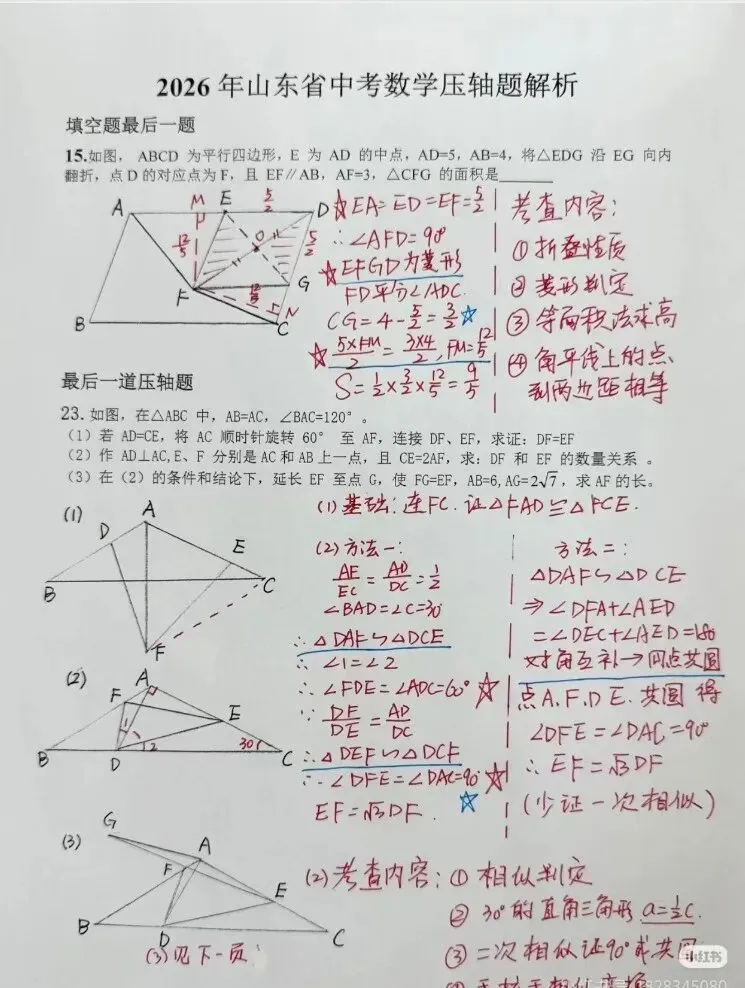 2026 年山东省中考数学压轴题解析
填空题最后一题
15.如图， ABCD 为平行四边形，E 为 AD 的中点，AD=5，AB=4，将△EDG 沿 EG 向内
翻折，点 D 的对应点为 F，且 EF∥AB，AF=3，△CFG 的面积是
A M E 5/2 D
H
12/5 O 5/2
F G
12/5
B C N
☆EA=ED=EF=5/2
∴∠AFD=90°
☆EFGD为菱形
FD平分∠ADC.
CG=4-5/2=3/2☆
☆5×FM/2=3×4/2, FM=12/5
S=1/2×3/2×12/5=9/5
考查内容:
①折叠性质
②菱形判定
③等面积法求高
④角平线上的点
到两边距相等
最后一道压轴题
23.如图，在△ABC 中，AB=AC，∠BAC=120°。
（1）若 AD=CE，将 AC 顺时针旋转 60° 至 AF，连接 DF、EF，求证：DF=EF
（2）作 AD⊥AC,E、F 分别是 AC 和 AB 上一点，且 CE=2AF，求：DF 和 EF 的数量关系 。
（3）在（2）的条件和结论下，延长 EF 至点 G，使 FG=EF，AB=6,AG=2√7，求 AF 的长。
(1)基础:连FC.证△FAD≌△FCE.
(1)
A
D E
B C
F
(2)方法一:
AF/EC=AD/DC=1/2
∠BAD=∠C=30°
∴△DAF∽△DCE
∴∠1=∠2
∴∠FDE=∠ADC=60°☆
∵DF/DE=AD/DC
∴△DEF∽△DCF
∴∠DFE=∠DAC=90°☆
EF=√3DF. ☆
方法二:
△DAF∽△DCE
⇒∠DFA+∠AED
=∠DEC+∠AED=180
对角互补→四点共圆
点A.F.D E.共圆 得
∠DFE=∠DAC=90°
∴EF=√3DF
(少证一次相似)
(2)
A
F
E
1 2 30°
B D C
(3)
G
A
F
E
B D C
(3)见下一页:
(2)考查内容:①相似判定
②30°的直角三角形 a=1/2c.
③二次相似证90°或共圆
小红书